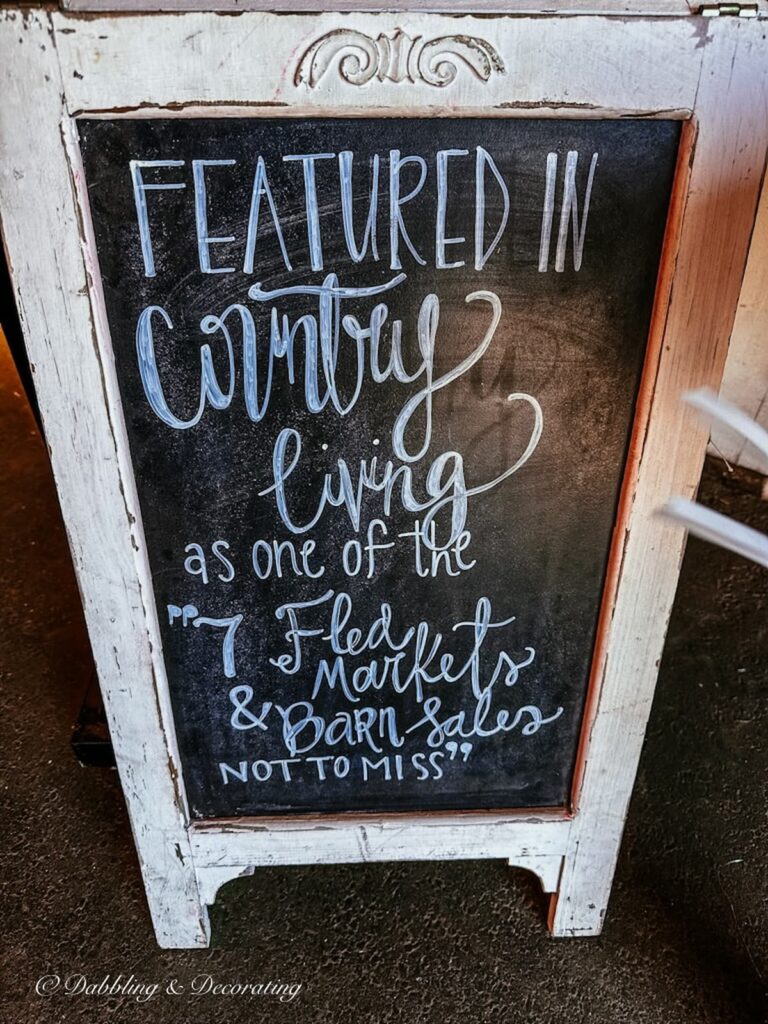 FEATURED IN
Country
living
as one of the
"7 Fled
Markets
& BARN Sales
NOT TO MISS"
© Dabbling & Decorating